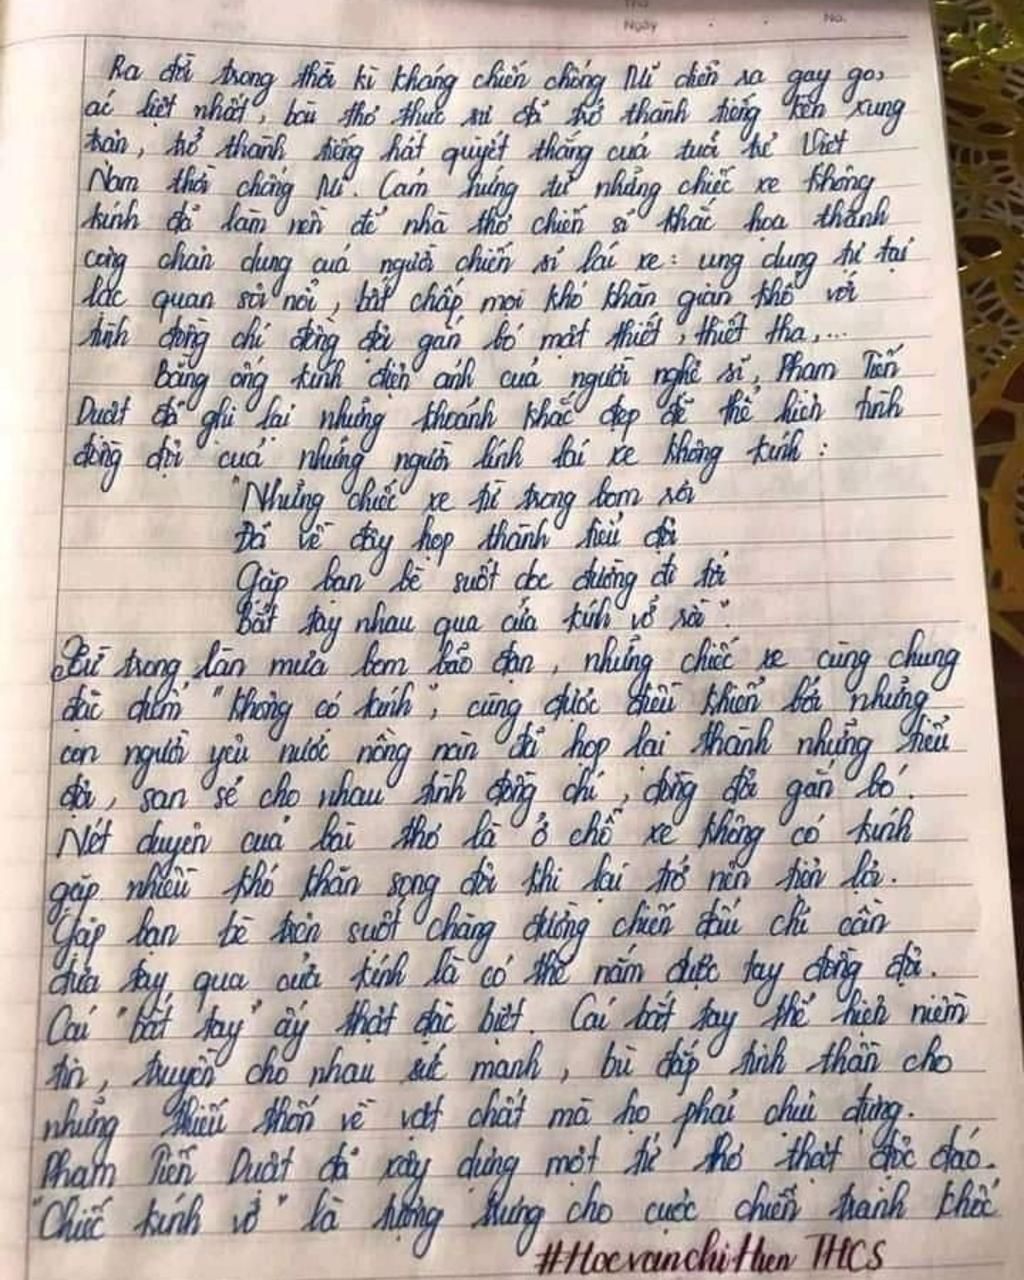 Thứ
Ngày . . No.
Ra đời trong thời kì kháng chiến chống Mĩ diễn ra gay go,
ác liệt nhất, bài thơ thực sự đã trở thành tiếng kèn xung
trận, trở thành tiếng hát quyết thắng của tuổi trẻ Việt
Nam thời chống Mĩ. Cảm hứng từ những chiếc xe không
kính đã làm nền để nhà thơ chiến sĩ khắc họa thành
công chân dung của người chiến sĩ lái xe: ung dung tự tại
lạc quan sôi nổi, bất chấp mọi khó khăn gian khổ với
tình đồng chí đồng đội gắn bó mật thiết, thiết tha,...
Bằng ống kính điện ảnh của người nghệ sĩ, Phạm Tiến
Duật đã ghi lại những khoảnh khắc đẹp đẽ thể hiện tình
đồng đội của những người lính lái xe không kính:
"Những chiếc xe từ trong bom rơi
Đã về đây họp thành tiểu đội
Gặp bạn bè suốt dọc đường đi tới
Bắt tay nhau qua cửa kính vỡ rồi".
Từ trong làn mưa bom bão đạn, những chiếc xe cùng chung
đặc điểm "không có kính", cùng được điều khiển bởi những
con người yêu nước nồng nàn đã họp lại thành những tiểu
đội, san sẻ cho nhau tình đồng chí, đồng đội gắn bó.
Nét duyên của bài thơ là ở chỗ xe không có kính
gặp nhiều khó khăn song đôi khi lại trở nên tiện lợi.
Gặp bạn bè trên suốt chặng đường chiến đấu chỉ cần
đưa tay qua cửa kính là có thể nắm được tay đồng đội.
Cái "bắt tay" ấy thật đặc biệt. Cái bắt tay thể hiện niềm
tin, truyền cho nhau sức mạnh, bù đắp tinh thần cho
những thiếu thốn về vật chất mà họ phải chịu đựng.
Phạm Tiến Duật đã xây dựng một tứ thơ thật độc đáo.
"Chiếc kính vỡ" là tượng trưng cho cuộc chiến tranh khốc
#HocvanchiHien THCS